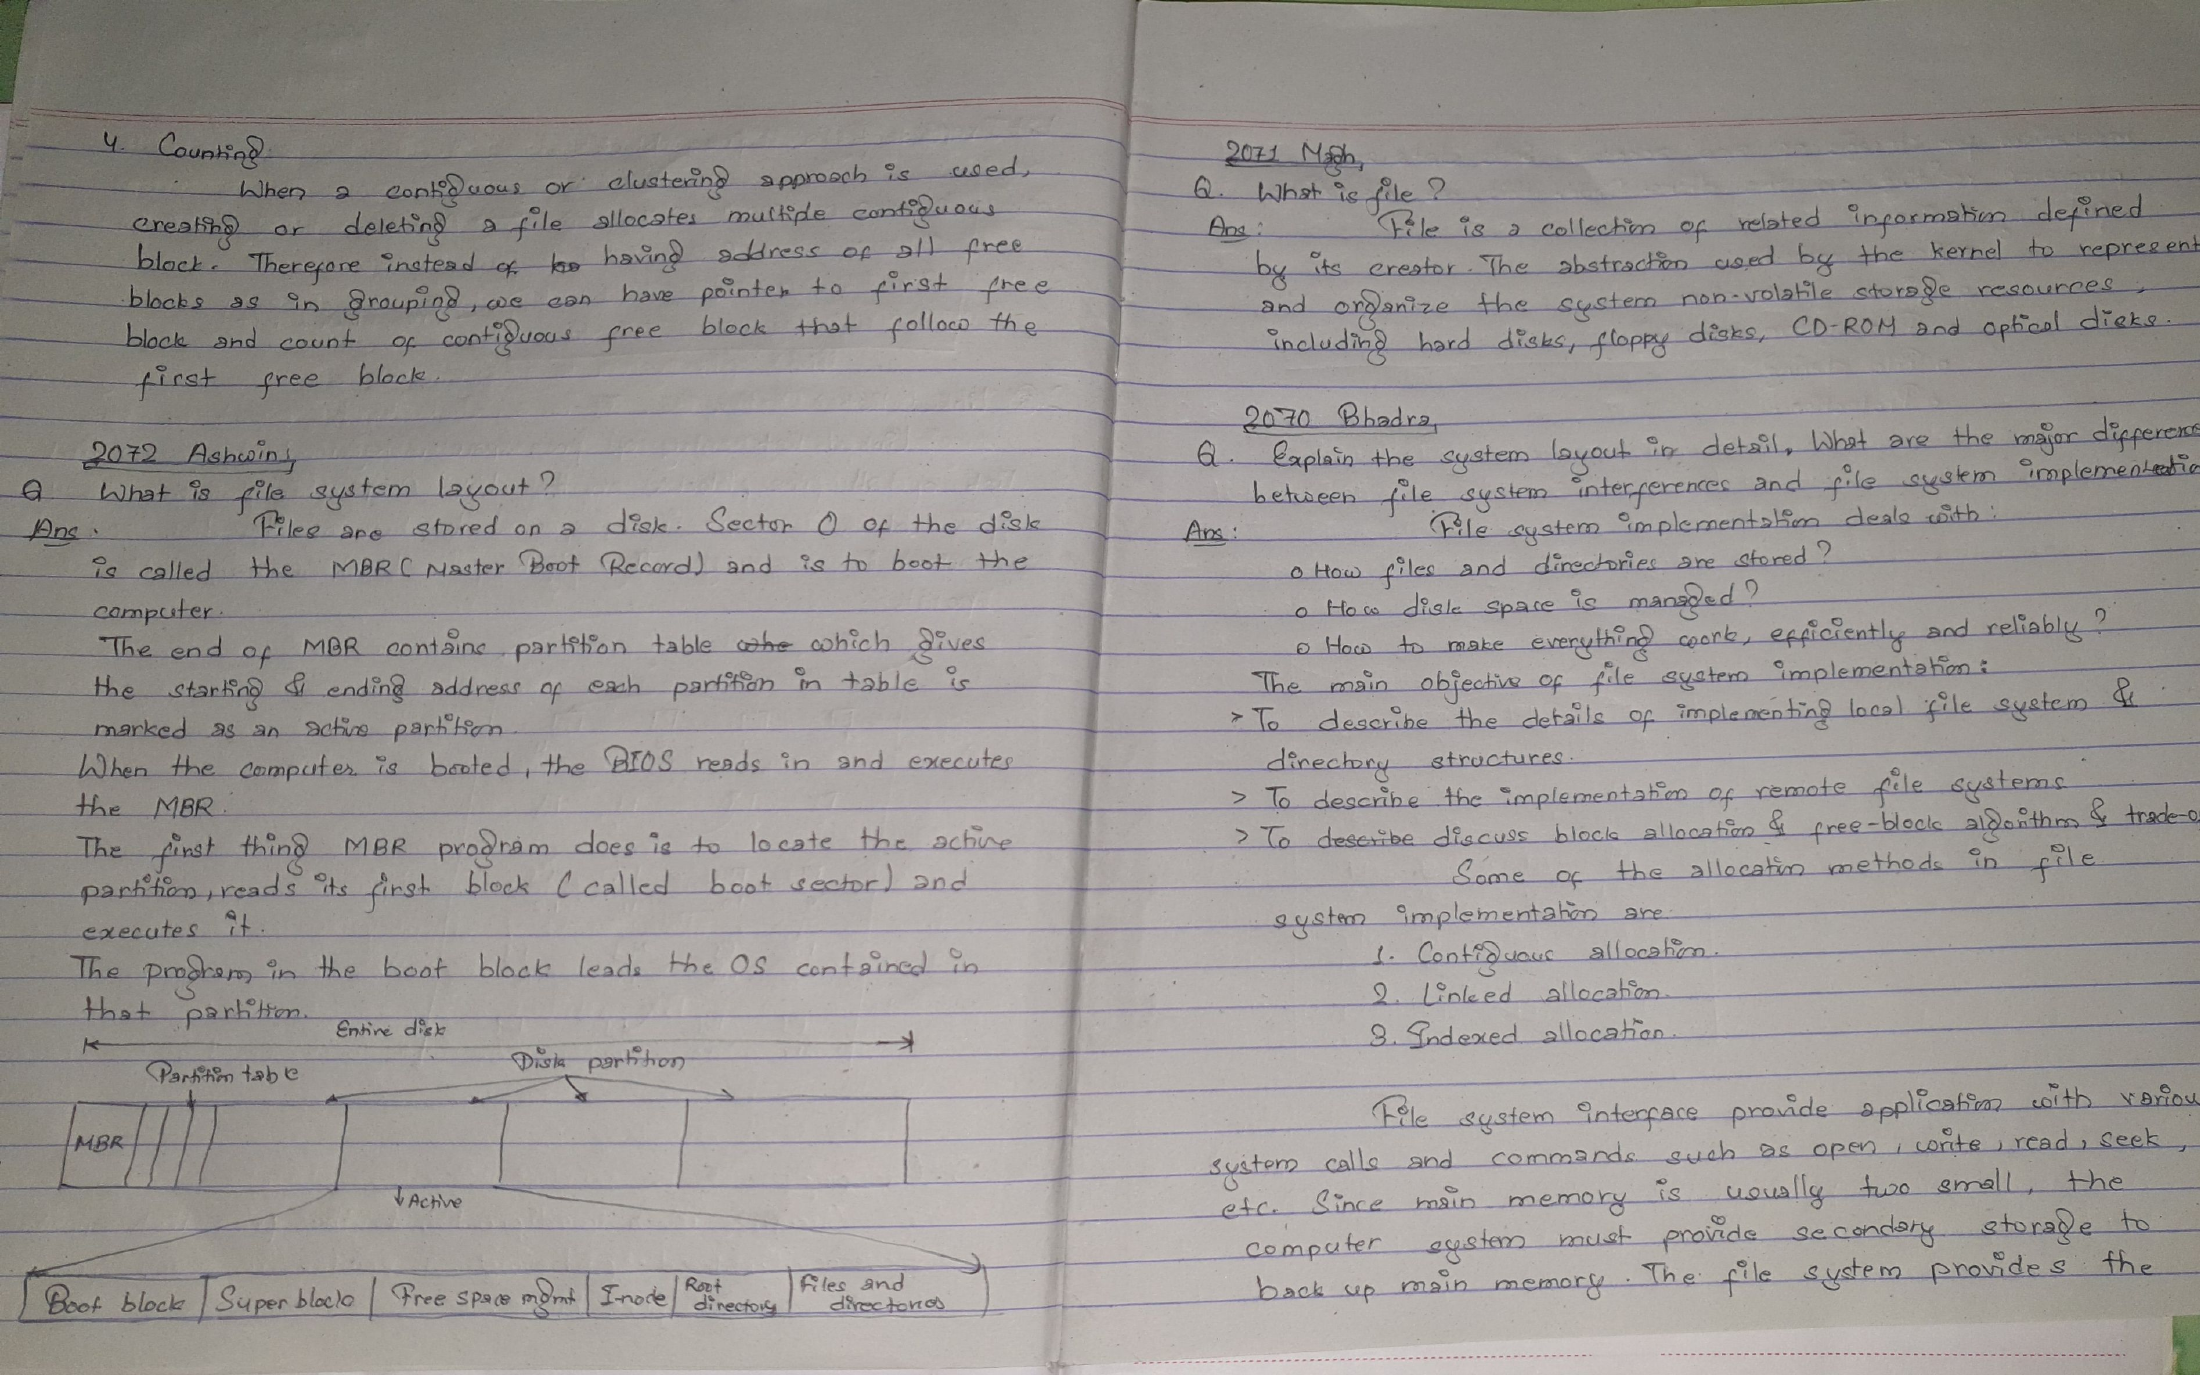 4. Counting
When a contiguous or clustering approach is used,
creating or deleting a file allocates multiple contiguous
block. Therefore instead of having address of all free
blocks as in grouping, we can have pointer to first free
block and count of contiguous free block that follow the
first free block.
2072 Ashwin,
Q What is file system layout?
Ans. Files are stored on a disk. Sector 0 of the disk
is called the MBR (Master Boot Record) and is to boot the
computer.
The end of MBR contains partition table which gives
the starting & ending address of each partition in table is
marked as an active partition.
When the computer is booted, the BIOS reads in and executes
the MBR.
The first thing MBR program does is to locate the active
partition, reads its first block (called boot sector) and
executes it.
The program in the boot block leads the OS contained in
that partition.
Entire disk
Partition table
Disk partition
MBR
Active
Boot block Super block Free space mgmt I-node Root directory Files and directories
2071 Magh,
Q. What is file?
Ans: File is a collection of related information defined
by its creator. The abstraction used by the kernel to represent
and organize the system non-volatile storage resources,
including hard disks, floppy disks, CD-ROM and optical disks.
2070 Bhadra,
Q. Explain the system layout in detail. What are the major difference
between file system interferences and file system implementatio
Ans: File system implementation deals with:
o How files and directories are stored?
o How disk space is managed?
o How to make everything work, efficiently and reliably?
The main objective of file system implementation:
> To describe the details of implementing local file system &
directory structures.
> To describe the implementation of remote file systems
> To describe discuss block allocation & free-block algorithm & trade-o
Some of the allocation methods in file
system implementation are
1. Contiguous allocation.
2. Linked allocation.
3. Indexed allocation.
File system interface provide application with variou
system calls and commands such as open, write, read, seek,
etc. Since main memory is usually two small, the
computer system must provide secondary storage to
back up main memory. The file system provides the